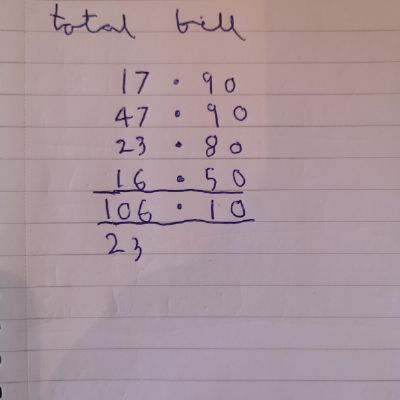 total bill
17 · 90
47 · 90
23 · 80
16 · 50
106 · 10
23